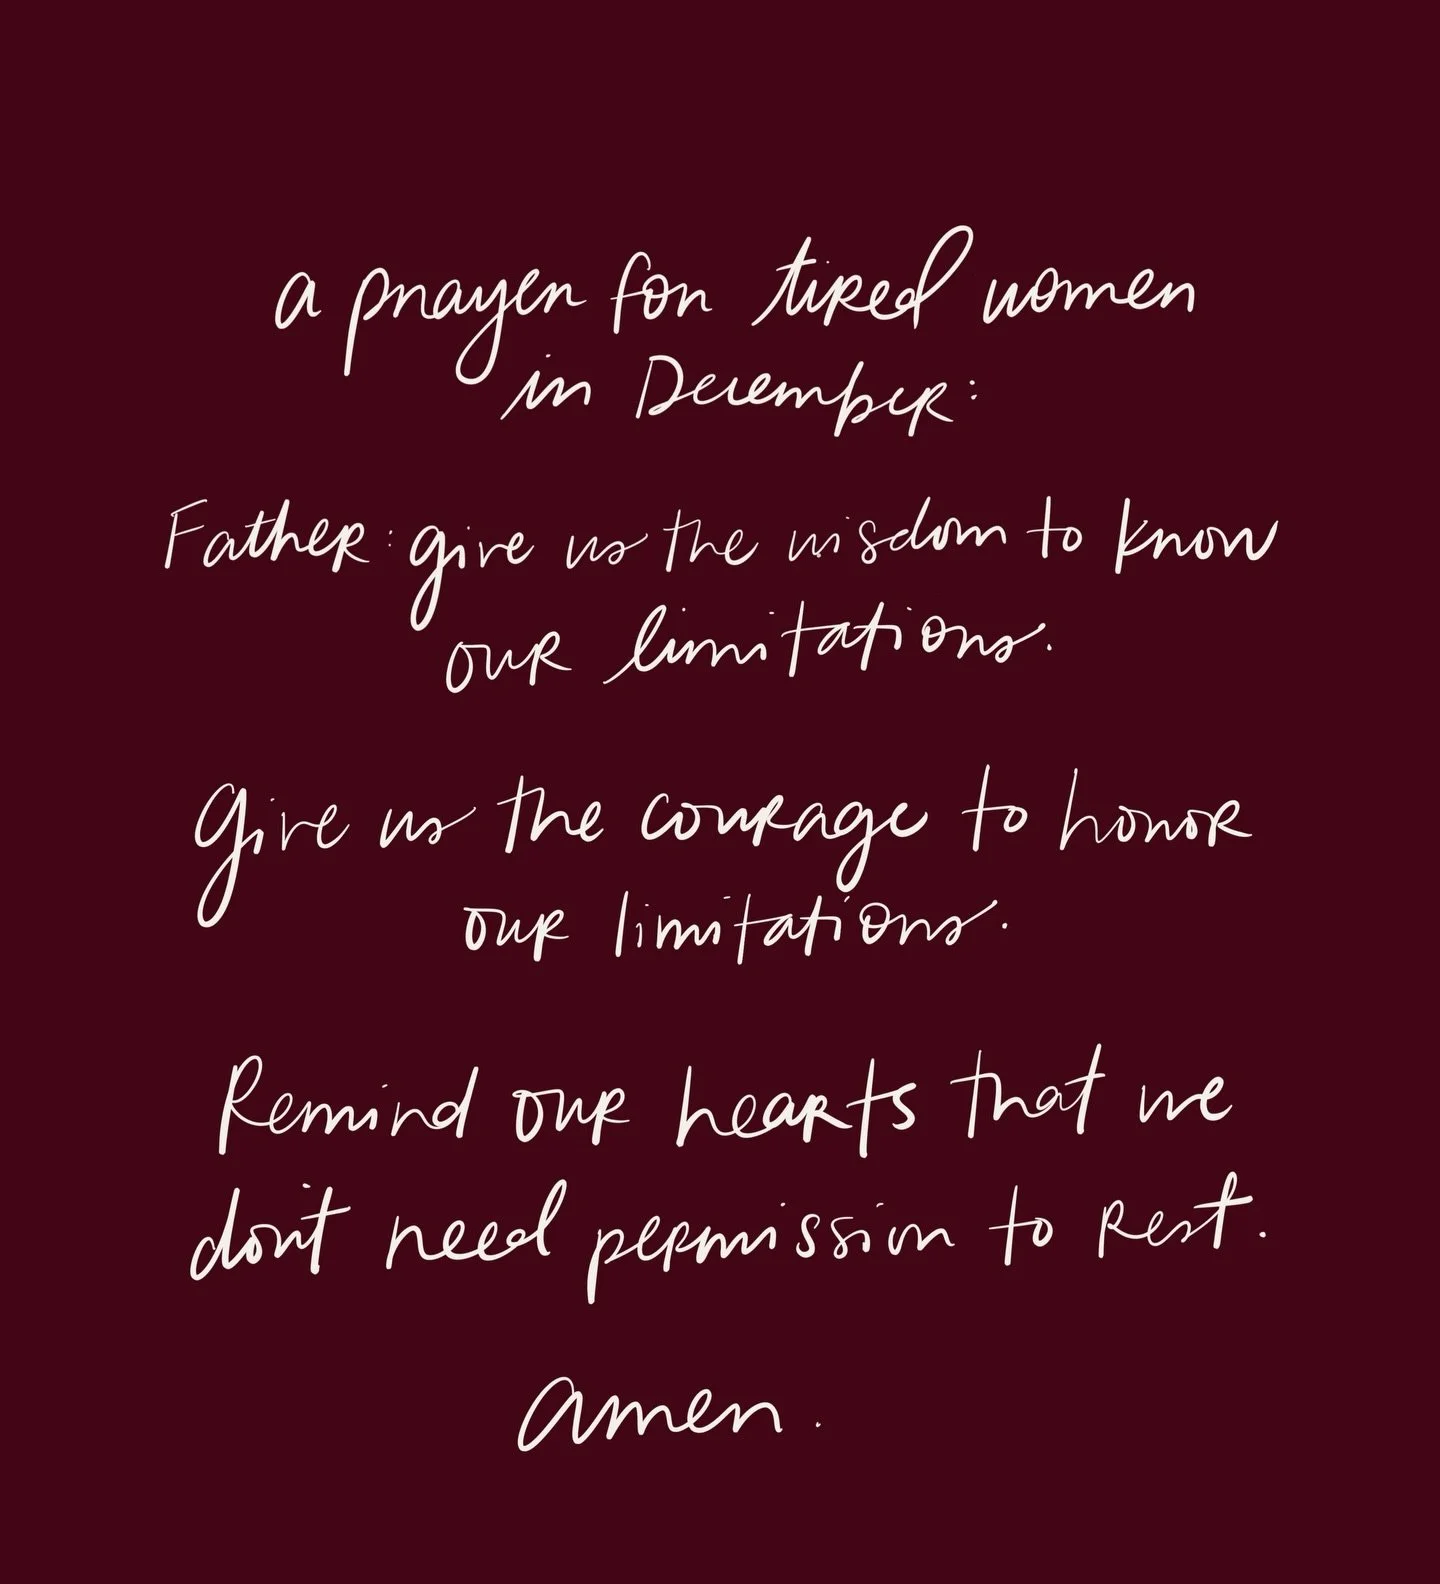 a prayer for tired women
in December:
Father: give us the wisdom to know
our limitations.
Give us the courage to honor
our limitations.
Remind our hearts that we
don't need permission to rest.
amen.